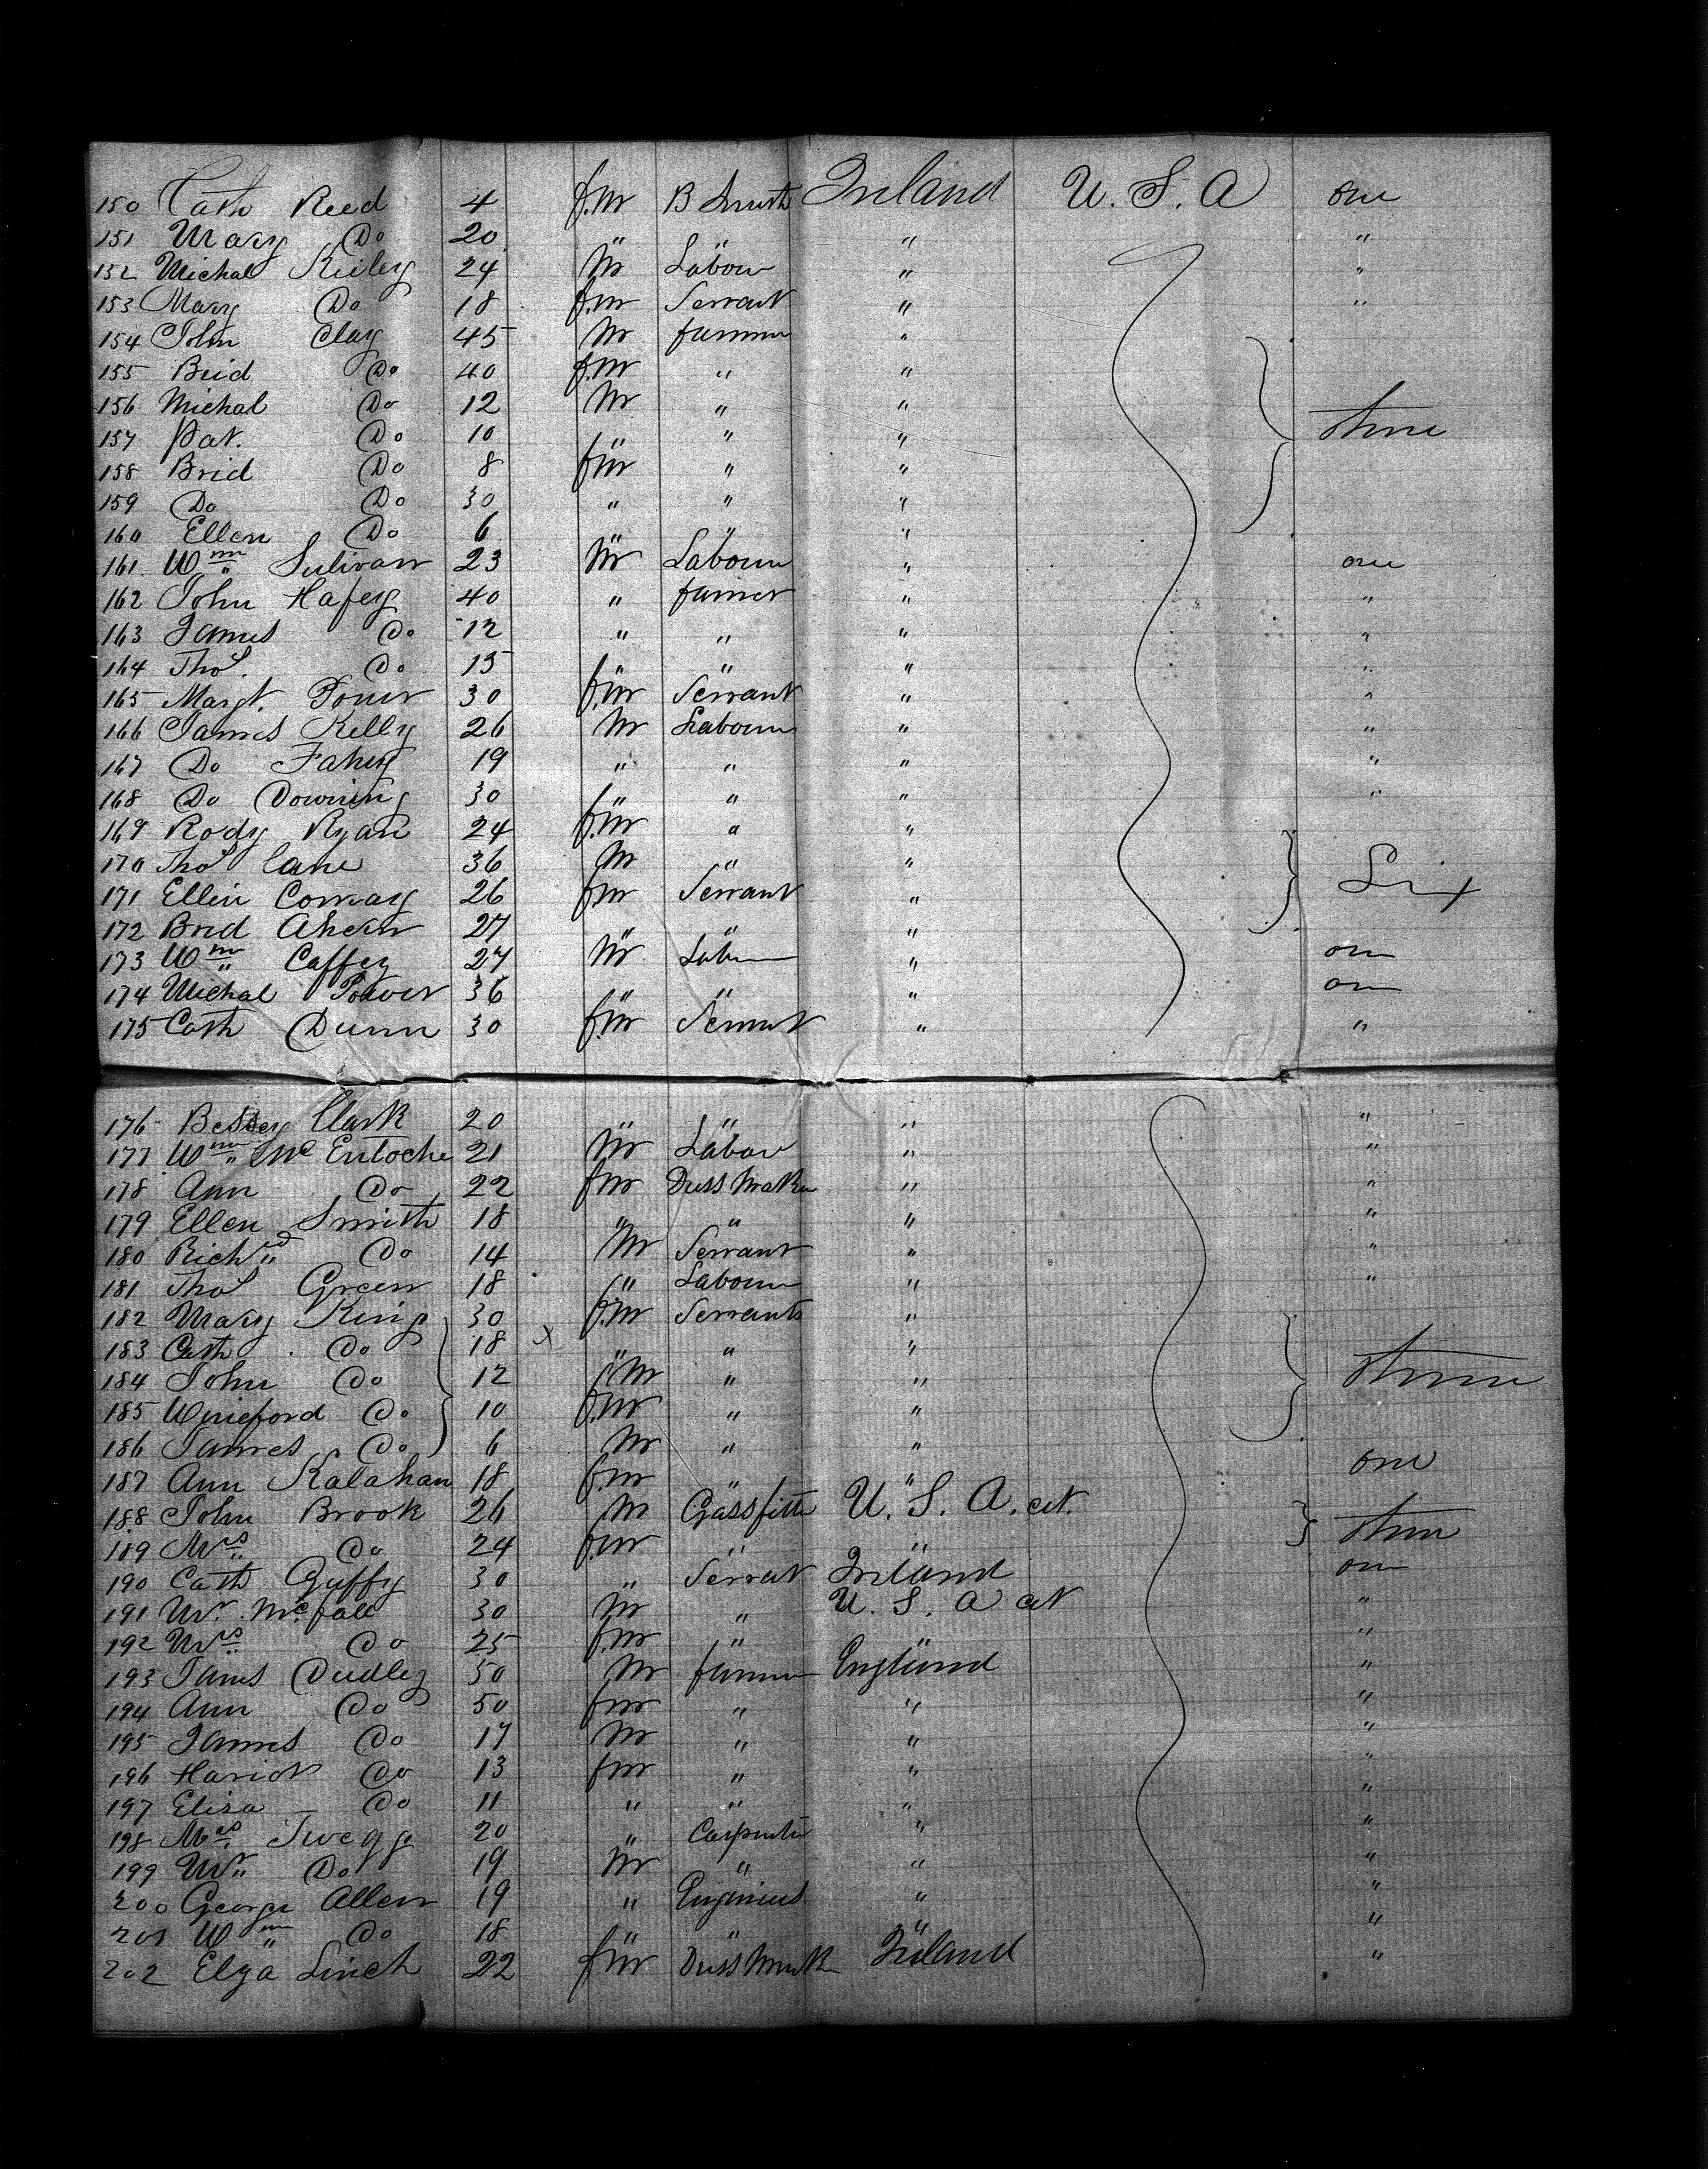 150 Cath Reed 4 f.m B Smith Ireland U.S.A one
151 Mary Do 20 " " " "
152 Michal Kieley 24 M Labour " "
153 Mary Do 18 f.m Servant " "
154 John Clay 45 M farmer "
155 Brid Do 40 f.m " "
156 Michal Do 12 M " "
157 Pat. Do 10 " " " three
158 Brid Do 8 fm " "
159 Do Do 30 " " "
160 Ellen Do 6 " " "
161 Wm Sulivan 23 M Labourer " one
162 John Hafey 40 " farmer " "
163 James Do 12 " " " "
164 Thos. Do 15 " " " "
165 Margt. Power 30 f.m Servant " "
166 James Kelly 26 M Labourer " "
167 Do Fahey 19 " " " "
168 Do Downing 30 " " " "
169 Rody Ryan 24 f.m " "
170 Thos Cane 36 M " " Six
171 Ellen Conway 26 fm Servant "
172 Brid Ahern 27 " " "
173 Wm Caffey 27 M Labour " one
174 Michal Power 36 " " " one
175 Cath Dunn 30 f.m Servant " "
176 Bessey Clark 20 " " " "
177 Wm Mc Entoche 21 M Labour " "
178 Ann Do 22 fm Dress Maker " "
179 Ellen Smith 18 " " " "
180 Richd Do 14 M Servant " "
181 Thos Green 18 " Labourer " "
182 Mary King 30 f.m Servants "
183 Cath Do 18 X " " "
184 John Do 12 M " " three
185 Wineford Do 10 f.m " "
186 James Do 6 M " "
187 Ann Kalahan 18 f.m " " one
188 John Brook 26 M Gassfitter U.S.A. cit. three
189 Mrs Do 24 f.m " "
190 Cath Guffy 30 " Servant Ireland one
191 Mr. Mc.fall 30 M " U.S.A cit "
192 Mrs Do 25 f.m " " "
193 James Dudley 50 M farmer England "
194 Ann Do 50 fm " " "
195 James Do 17 M " " "
196 Hariot Do 13 fm " " "
197 Elisa Do 11 " " " "
198 Mrs Twegg 20 " Carpenter " "
199 Mr Do 19 M " " "
200 George Allen 19 " Enginies " "
201 Wm Do 18 " " " "
202 Elza Linch 22 f.m Dress Mak Ireland "